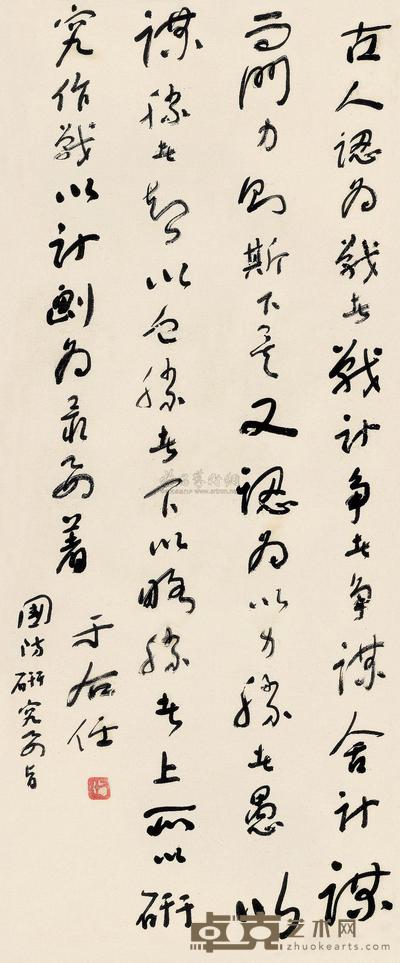 古人認為戰者戰計爭者爭謀舍計謀
而鬥力則斯下矣又認為以力勝者愚以
謀勝者智以色勝者下以略勝者上所以研
究作戰以計劃為最要著
于右任
國防研究要旨
卓克艺术网
www.zhuokearts.com